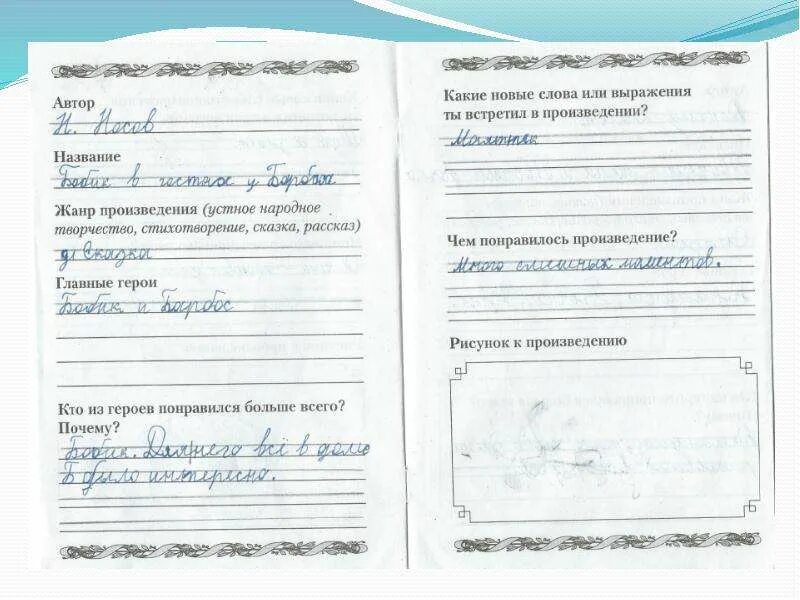 Автор
Н. Носов
Название
Бобик в гостях у Барбоса
Жанр произведения (устное народное
творчество, стихотворение, сказка, рассказ)
Сказка
Главные герои
Бобик и Барбос
Кто из героев понравился больше всего?
Почему?
Бобик. Для него всё в доме
было интересно.
Какие новые слова или выражения
ты встретил в произведении?
Маятник
Чем понравилось произведение?
Много смешных моментов.
Рисунок к произведению